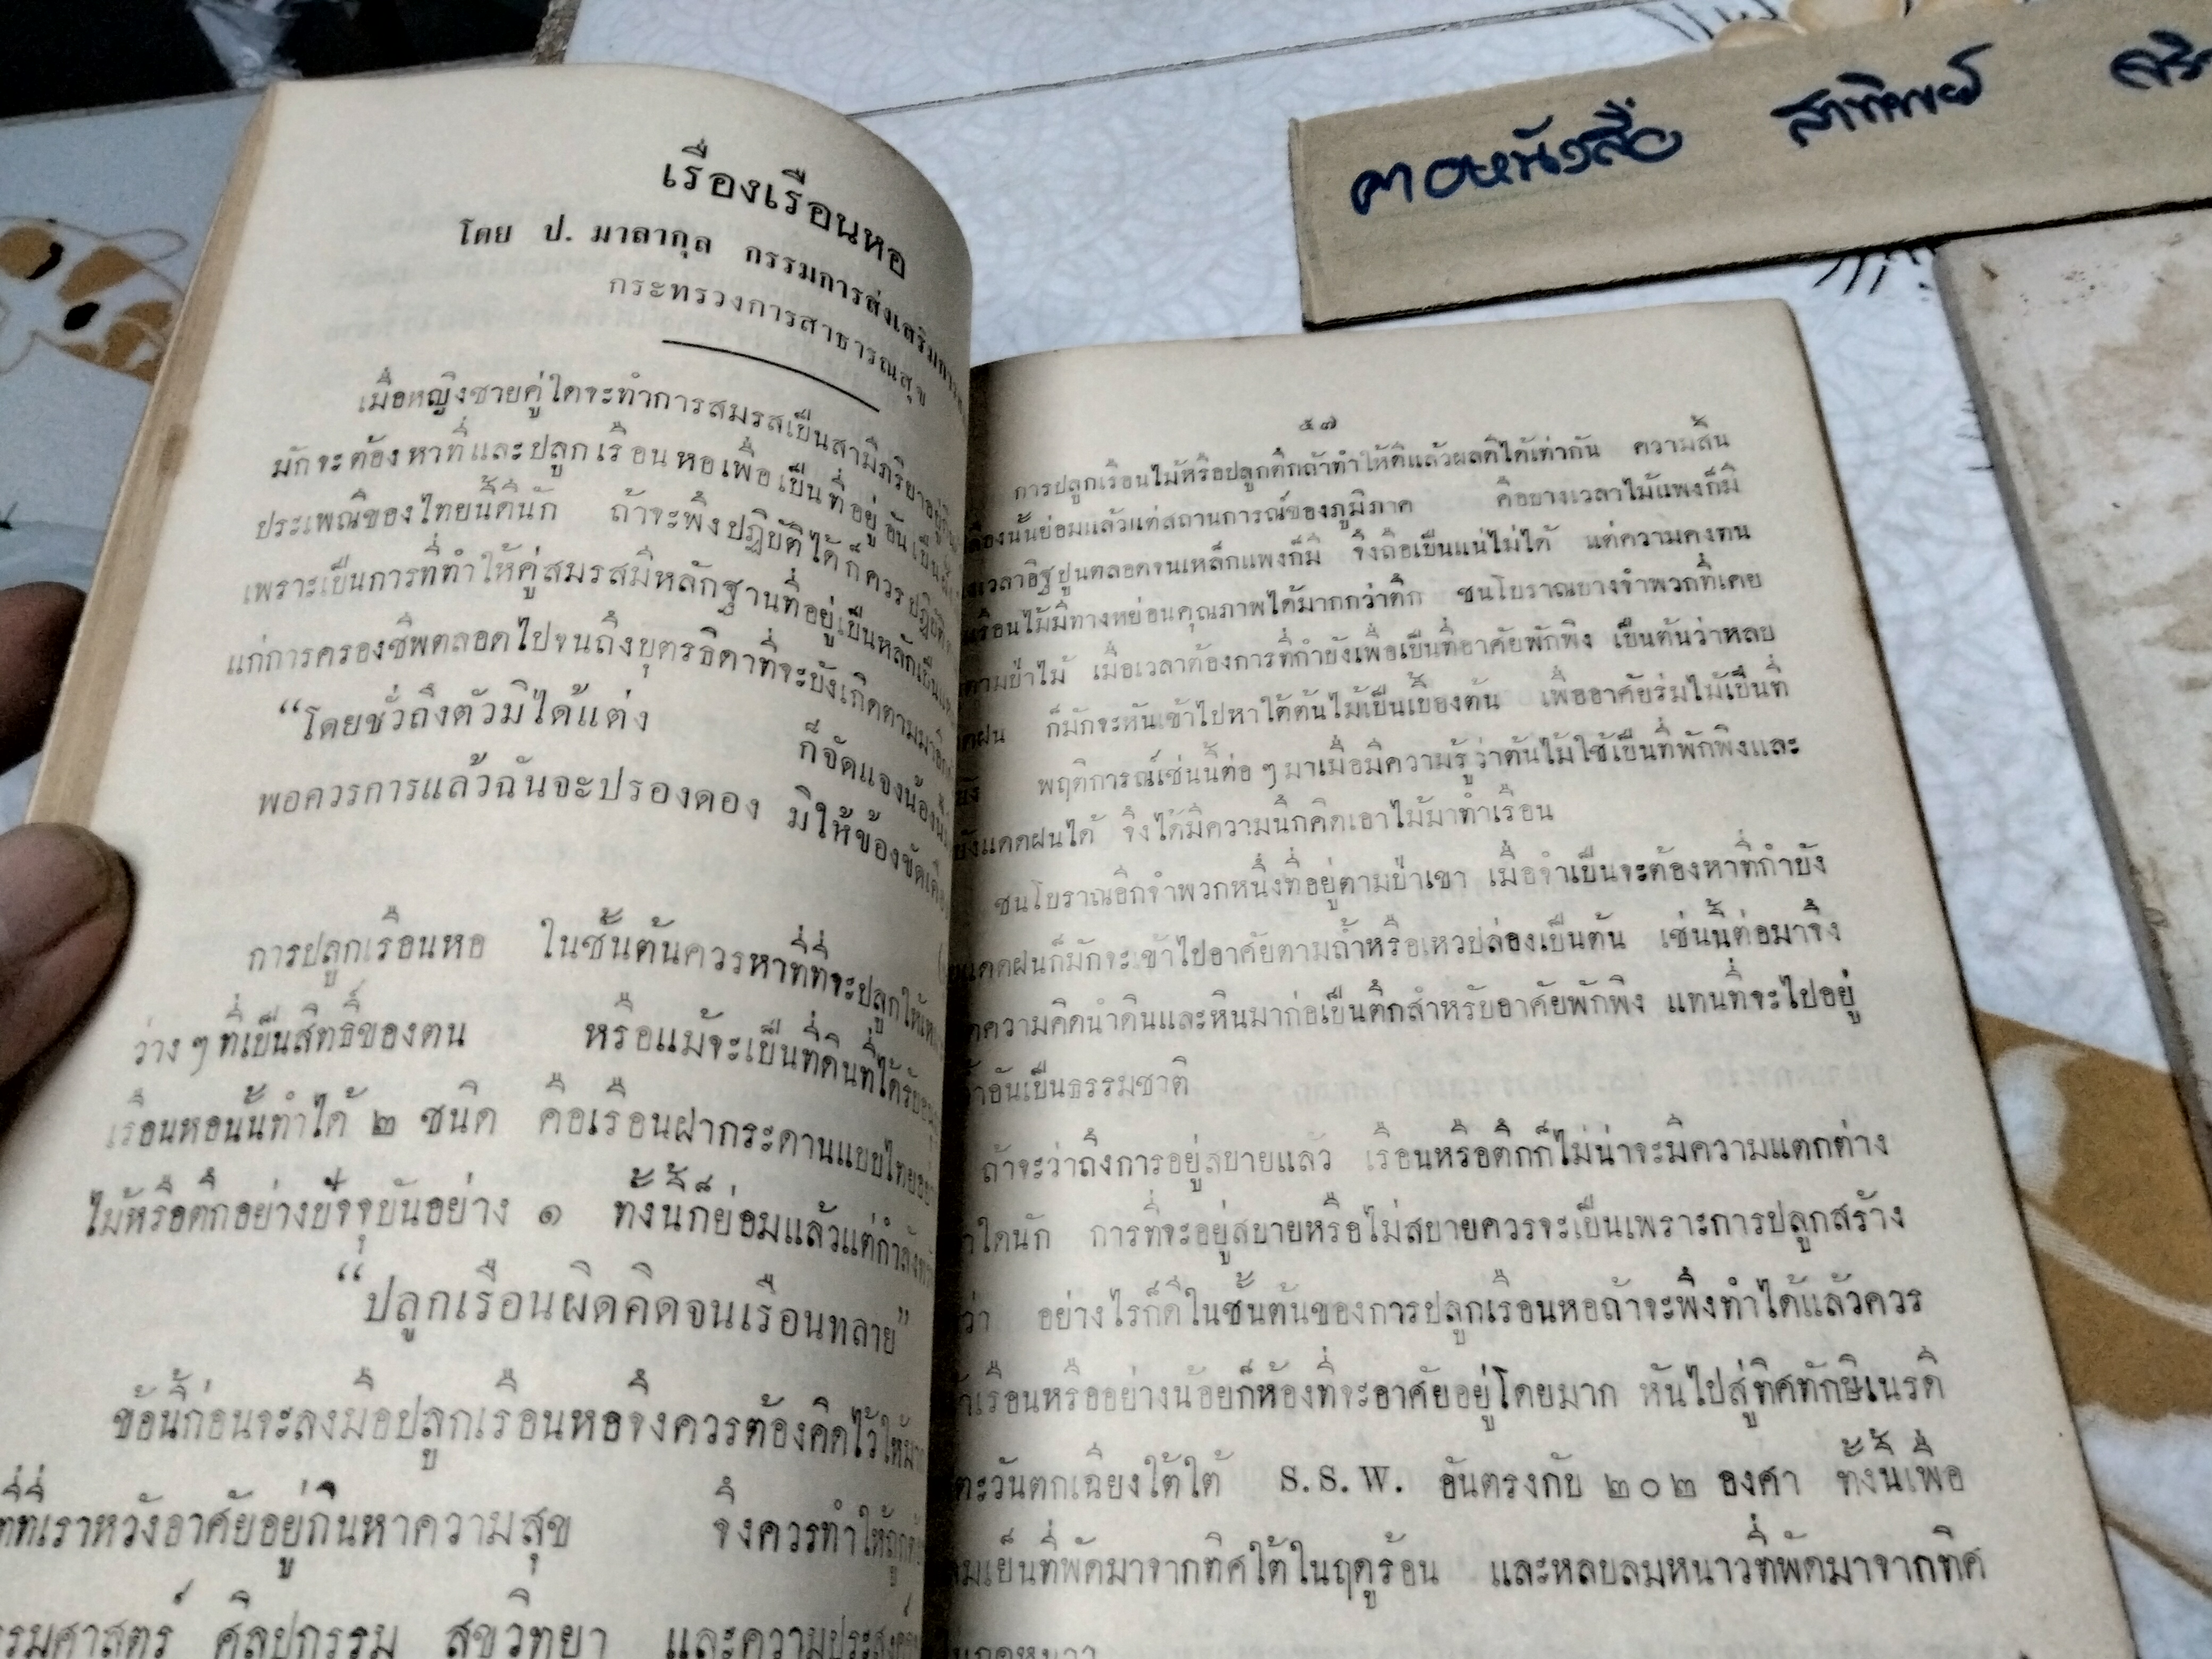 คอหนังสือ
เรื่องเรือนหอ
โดย ป. มาลากุล กรรมการส่งเสริมการ
กระทรวงการสาธารณสุข
เมื่อหญิงชายคู่ใดจะทำการสมรสเป็นสามีภริยาอยู่
มักจะต้องหาที่และปลูกเรือนหอเพื่อเป็นที่อยู่ อันเป็น
ประเพณีของไทยนี้ดีนัก ถ้าจะพึงปฏิบัติได้ก็ควรปฏิบัติ
เพราะเป็นการที่ทำให้คู่สมรสมีหลักฐานที่อยู่เป็นหลักเป็น
แก่การครองชีพตลอดไปจนถึงบุตรธิดาที่จะบังเกิดตามมาอีก
“โดยชั่วถึงตัวมิได้แต่ง ก็จัดแจงน้อง
พอควรการแล้วฉันจะปรองดอง มิให้ข้องขัดเคือง
การปลูกเรือนหอ ในชั้นต้นควรหาที่ที่จะปลูกให้
ว่าง ๆ ที่เป็นสิทธิ์ของตน หรือแม้จะเป็นที่ดินที่ได้รับ
เรือนหอนั้นทำได้ ๒ ชนิด คือเรือนฝากระดานแบบไทย
ไม้หรือตึกอย่างปัจจุบันอย่าง ๑ ทั้งนี้ก็ย่อมแล้วแต่กำลัง
“ปลูกเรือนผิดคิดจนเรือนทลาย”
ข้อนี้ก่อนจะลงมือปลูกเรือนหอจึงควรต้องคิดไว้ให้
ที่เราหวังอาศัยอยู่กินหาความสุข จึงควรทำให้ถูก
รรมศาสตร์ ศิลปกรรม สุขวิทยา และความประสงค์
๕๗
การปลูกเรือนไม้หรือปลูกตึกถ้าทำให้ดีแล้วผลดีได้เท่ากัน ความสิ้น
เปลืองนั้นย่อมแล้วแต่สถานการณ์ของภูมิภาค คือบางเวลาไม้แพงก็มี
เวลาอิฐปูนตลอดจนเหล็กแพงก็มี จึงถือเป็นแน่ไม่ได้ แต่ความคงทน
เรือนไม้มีทางหย่อนคุณภาพได้มากกว่าตึก ชนโบราณบางจำพวกที่เคย
ตามป่าไม้ เมื่อเวลาต้องการที่กำบังเพื่อเป็นที่อาศัยพักพิง เป็นต้นว่าหลบ
ฝน ก็มักจะหันเข้าไปหาใต้ต้นไม้เป็นเบื้องต้น เพื่ออาศัยร่มไม้เป็นที่
พฤติการณ์เช่นนี้ต่อ ๆ มาเมื่อมีความรู้ว่าต้นไม้ใช้เป็นที่พักพิงและ
บังแดดฝนได้ จึงได้มีความนึกคิดเอาไม้มาทำเรือน
ชนโบราณอีกจำพวกหนึ่งที่อยู่ตามป่าเขา เมื่อจำเป็นจะต้องหาที่กำบัง
แดดฝนก็มักจะเข้าไปอาศัยตามถ้ำหรือเหวปล่องเป็นต้น เช่นนี้ต่อมาจึง
ความคิดนำดินและหินมาก่อเป็นตึกสำหรับอาศัยพักพิง แทนที่จะไปอยู่
ถ้ำอันเป็นธรรมชาติ
ถ้าจะว่าถึงการอยู่สบายแล้ว เรือนหรือตึกก็ไม่น่าจะมีความแตกต่าง
ใดนัก การที่จะอยู่สบายหรือไม่สบายควรจะเป็นเพราะการปลูกสร้าง
ว่า อย่างไรก็ดีในชั้นต้นของการปลูกเรือนหอถ้าจะพึงทำได้แล้วควร
เรือนหรืออย่างน้อยก็ห้องที่จะอาศัยอยู่โดยมาก หันไปสู่ทิศทักษิเนรดี
ตะวันตกเฉียงใต้ใต้ S. S. W. อันตรงกับ ๒๐๒ องศา ทั้งนี้เพื่อ
ลมเย็นที่พัดมาจากทิศใต้ในฤดูร้อน และหลบลมหนาวที่พัดมาจากทิศ